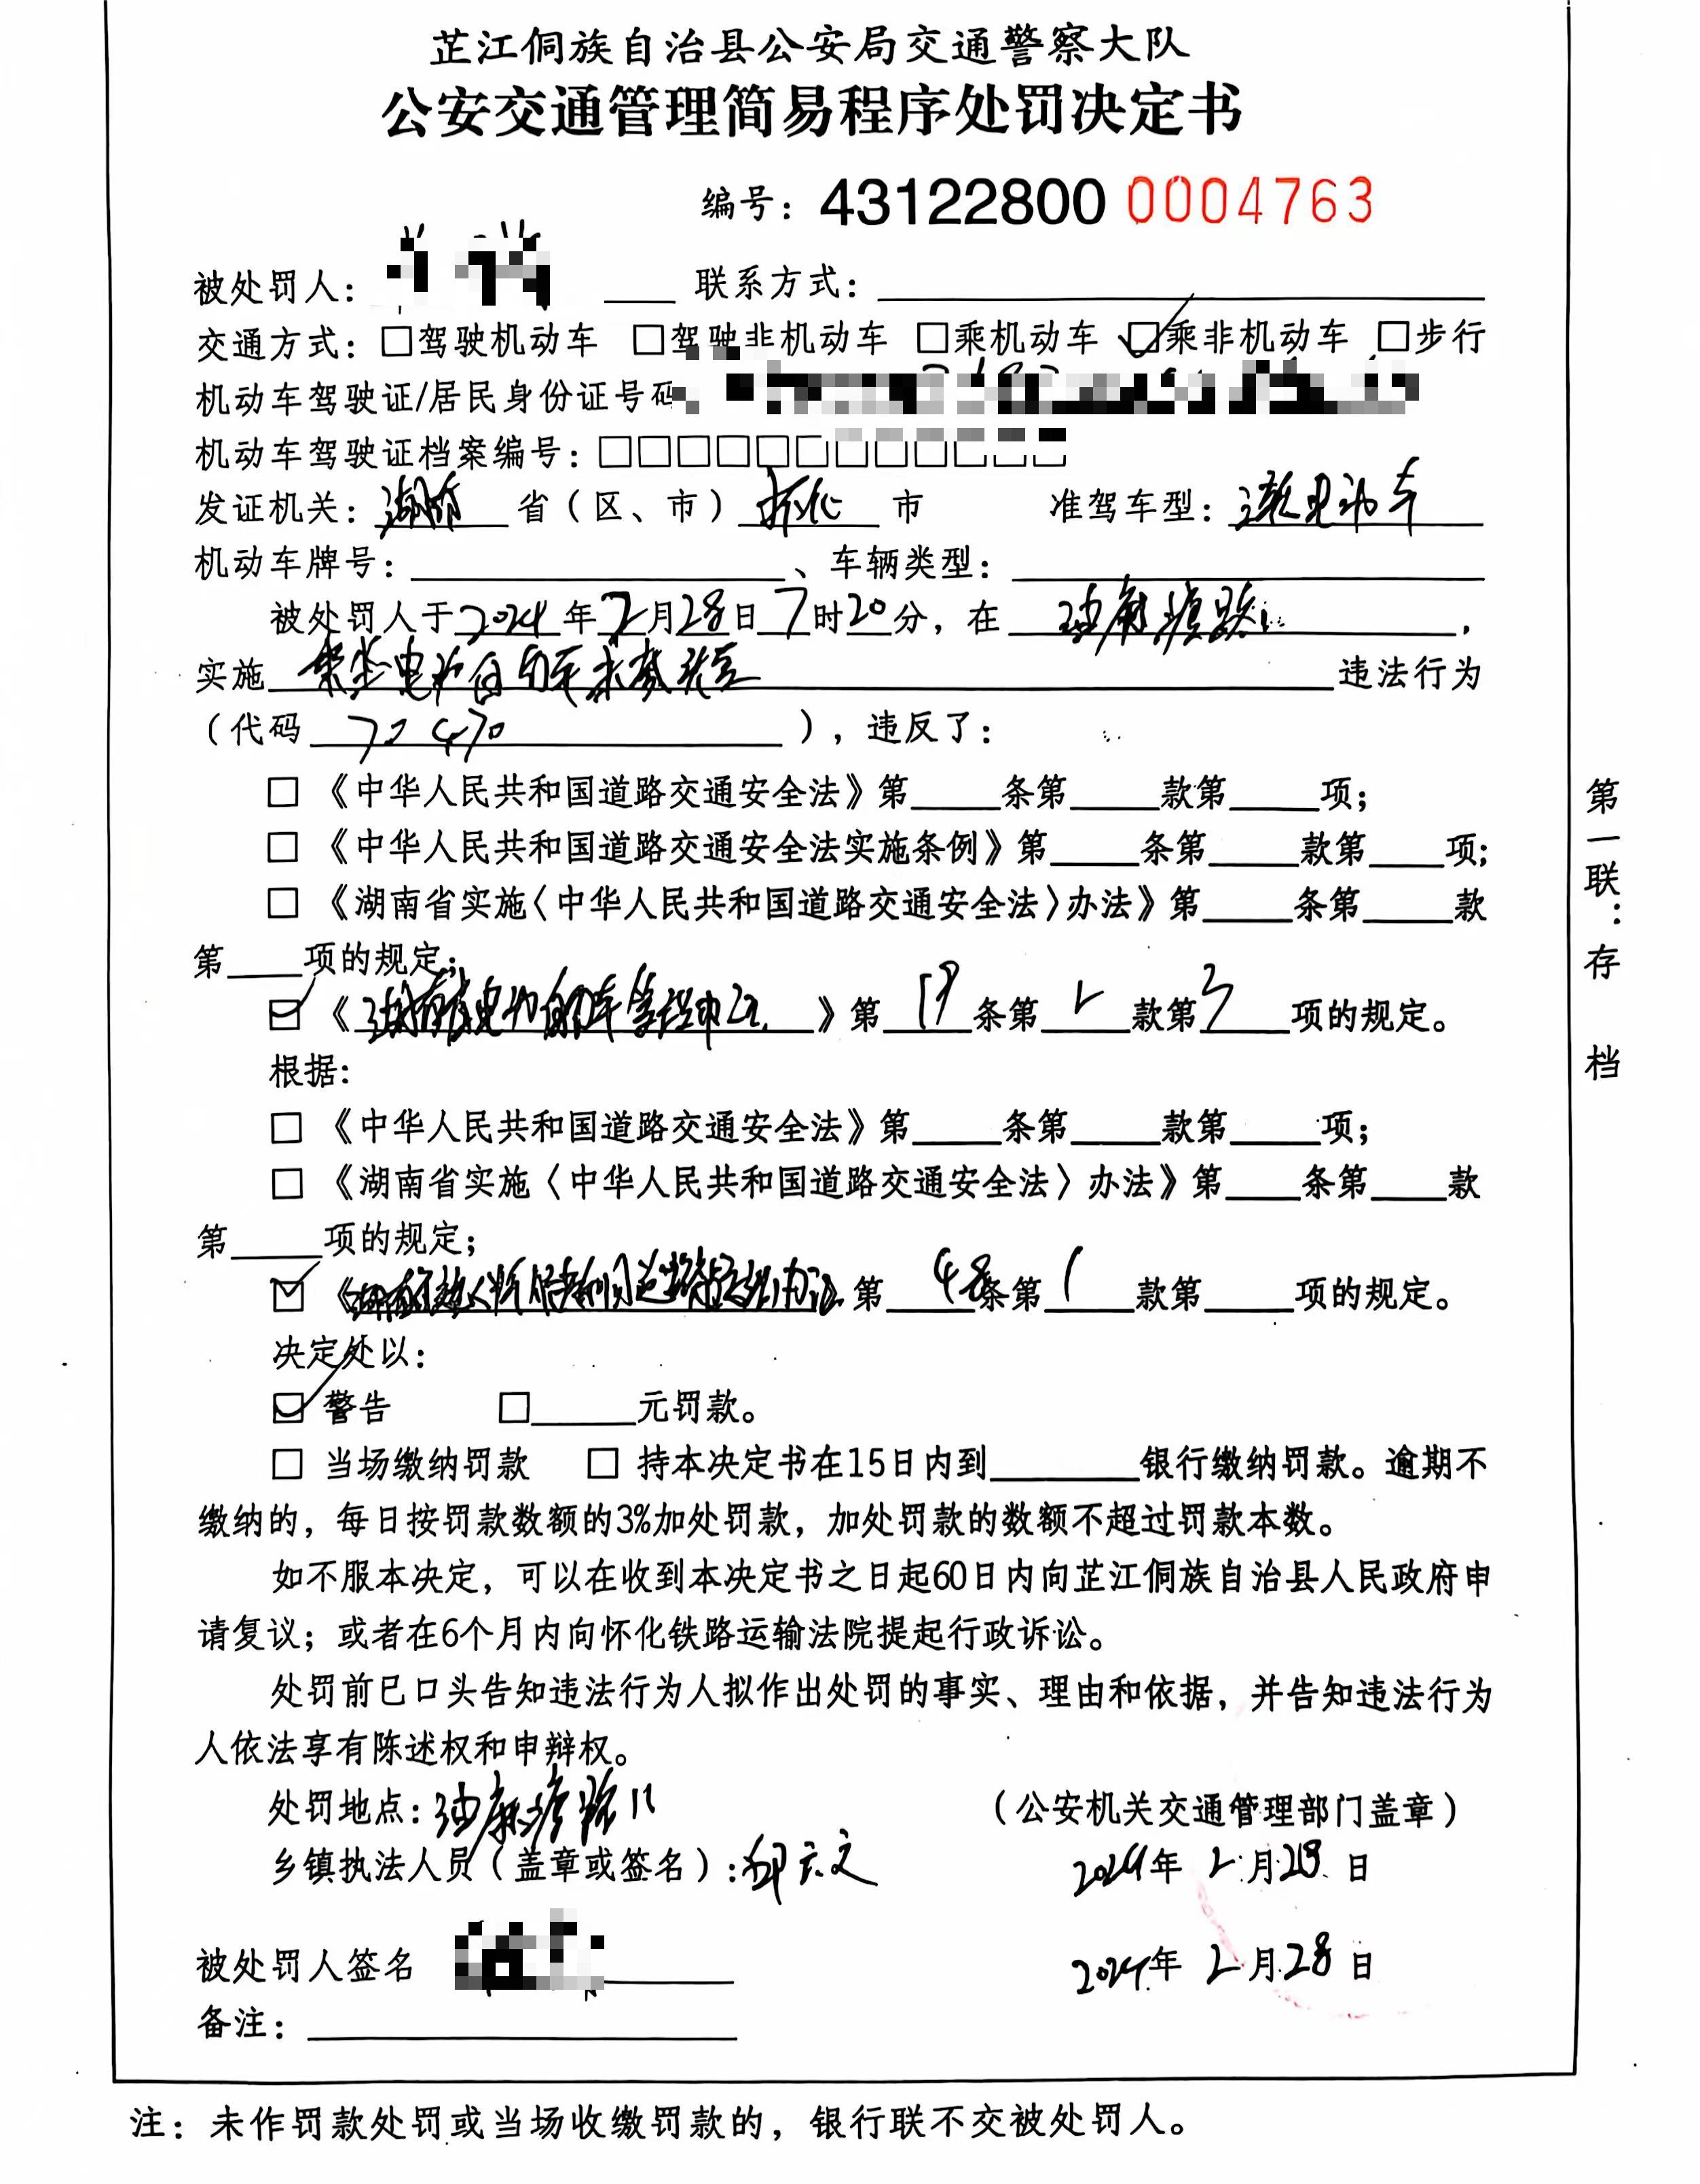 芷江侗族自治县公安局交通警察大队
公安交通管理简易程序处罚决定书
编号：43122800 0004763
被处罚人： 联系方式：
交通方式：□驾驶机动车 □驾驶非机动车 □乘机动车 ☑乘非机动车 □步行
机动车驾驶证/居民身份证号码
机动车驾驶证档案编号：□□□□□□□□□□□□
发证机关：湖南省（区、市）怀化市 准驾车型：电动车
机动车牌号： 、车辆类型：
被处罚人于2024年2月28日7时20分，在 ，
实施乘坐电动自行车未戴头盔违法行为
（代码 ），违反了：
□《中华人民共和国道路交通安全法》第 条第 款第 项；
□《中华人民共和国道路交通安全法实施条例》第 条第 款第 项；
□《湖南省实施〈中华人民共和国道路交通安全法〉办法》第 条第 款
第 项的规定；
☑《湖南省电动自行车管理办法》第 条第2款第3项的规定。
根据：
□《中华人民共和国道路交通安全法》第 条第 款第 项；
□《湖南省实施〈中华人民共和国道路交通安全法〉办法》第 条第 款
第 项的规定；
☑《 办法》第48条第1款第 项的规定。
决定处以：
☑警告 □ 元罚款。
□ 当场缴纳罚款 □ 持本决定书在15日内到 银行缴纳罚款。逾期不
缴纳的，每日按罚款数额的3%加处罚款，加处罚款的数额不超过罚款本数。
如不服本决定，可以在收到本决定书之日起60日内向芷江侗族自治县人民政府申
请复议；或者在6个月内向怀化铁路运输法院提起行政诉讼。
处罚前已口头告知违法行为人拟作出处罚的事实、理由和依据，并告知违法行为
人依法享有陈述权和申辩权。
处罚地点： （公安机关交通管理部门盖章）
乡镇执法人员（盖章或签名）： 2024年2月28日
被处罚人签名 2024年2月28日
备注：
第一联：存档
注：未作罚款处罚或当场收缴罚款的，银行联不交被处罚人。